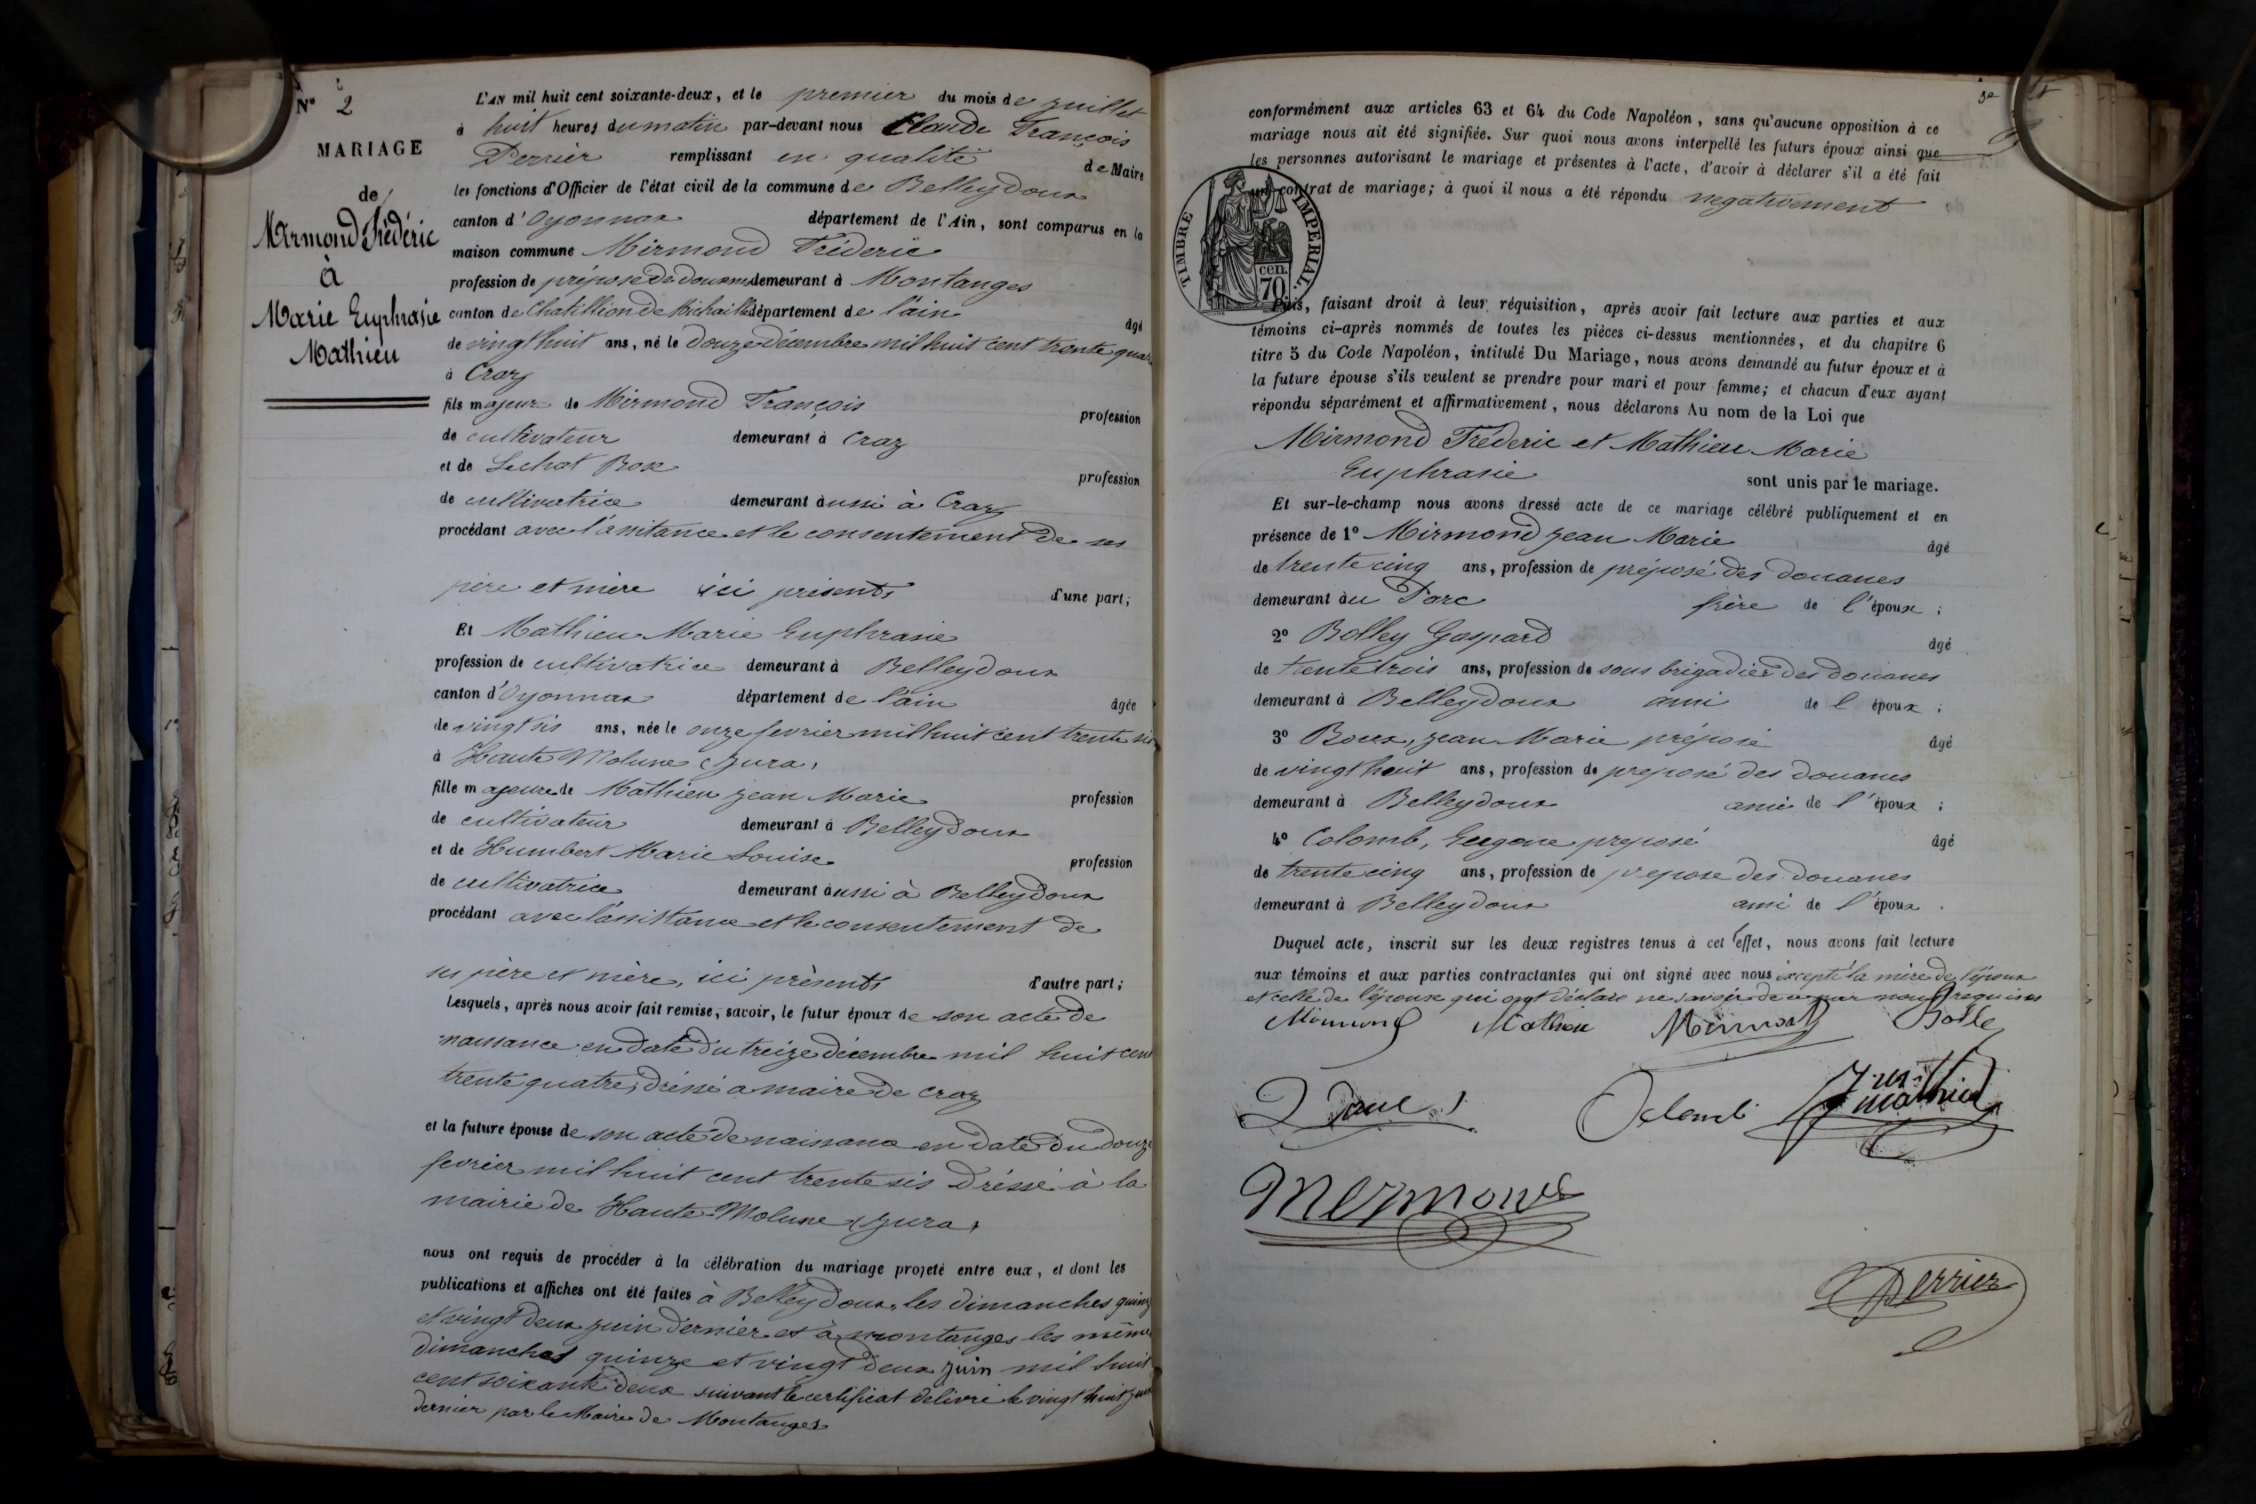 N° 2
MARIAGE
de
Mirmond Frédéric
à
Marie Euphrasie
Mathieu
L'AN mil huit cent soixante-deux, et le premier du mois de juillet
à huit heures du matin par-devant nous Claude François
Perrier remplissant en qualité de Maire
les fonctions d'Officier de l'état civil de la commune de Belleydoux
canton d'Oyonnax département de l'Ain, sont comparus en la
maison commune Mirmond Fréderic
profession de préposé de douanes demeurant à Montanges
canton de Chatillion de Michaille département de l'ain âgé
de vingt huit ans, né le douze décembre mil huit cent trente quatre
à Craz
fils majeur de Mirmond François profession
de cultivateur demeurant à Craz
et de Luchat Rose profession
de cultivatrice demeurant aussi à Craz
procédant avec l'assitance et le consentement de ses
père et mère ici présents d'une part;
Et Mathieu Marie Euphrasie
profession de cultivatrice demeurant à Belleydoux
canton d'Oyonnax département de l'ain âgée
de vingt sis ans, née le onze fevrier mil huit cent trente sis
à Haute Molune (Jura)
fille majeure de Mathieu jean Marie profession
de cultivateur demeurant à Belleydoux
et de Humbert Marie Louise profession
de cultivatrice demeurant aussi à Belleydoux
procédant avec l'assistance et le consentement de
ses père et mère, ici présents d'autre part;
Lesquels, après nous avoir fait remise, savoir, le futur époux de son acte de
naissance en date du treize décembre mil huit cent
trente quatre, dréssé a maire de craz
et la future épouse de son acte de naissance en date du douze
fevrier mil huit cent trente sis dréssé à la
mairie de Haute-Molune (Jura)
nous ont requis de procéder à la célébration du mariage projeté entre eux, et dont les
publications et affiches ont été faites à Belleydoux, les dimanches quinze
et vingt deux juin dernier et à montanges les même
dimanches quinze et vingt deux juin mil huit
cent soixante deux suivant le certificat delivré le vingt huit juin
dernier par le Maire de Montanges
conformément aux articles 63 et 64 du Code Napoléon, sans qu'aucune opposition à ce
mariage nous ait été signifiée. Sur quoi nous avons interpellé les futurs époux ainsi que
les personnes autorisant le mariage et présentes à l'acte, d'avoir à déclarer s'il a été fait
un contrat de mariage; à quoi il nous a été répondu negativement
TIMBRE IMPERIAL.
70 cen.
Puis, faisant droit à leur réquisition, après avoir fait lecture aux parties et aux
témoins ci-après nommés de toutes les pièces ci-dessus mentionnées, et du chapitre 6
titre 5 du Code Napoléon, intitulé Du Mariage, nous avons demandé au futur époux et à
la future épouse s'ils veulent se prendre pour mari et pour femme; et chacun d'eux ayant
répondu séparément et affirmativement, nous déclarons Au nom de la Loi que
Mirmond Fréderic et Mathieu Marie
Euphrasie sont unis par le mariage.
Et sur-le-champ nous avons dressé acte de ce mariage célébré publiquement et en
présence de 1° Mirmond jean Marie âgé
de trente cinq ans, profession de préposé des douanes
demeurant au Parc frère de l'époux;
2° Bolley Gaspard âgé
de trente trois ans, profession de sous brigadier des douanes
demeurant à Belleydoux ami de l'époux;
3° jean Marie préposé âgé
de vingt huit ans, profession de préposé des douanes
demeurant à Belleydoux ami de l'époux;
4° Colomb, preposé âgé
de trente cinq ans, profession de prepose des douanes
demeurant à Belleydoux ami de l'époux.
Duquel acte, inscrit sur les deux registres tenus à cet effet, nous avons fait lecture
aux témoins et aux parties contractantes qui ont signé avec nous excepté la mère de l'époux
et celle de l'épouse qui ont déclaré ne savoir de ce par nous requises
Mirmond Mathieu Mirmond Bolle
Colomb Mathieu
Mermond
Perrier